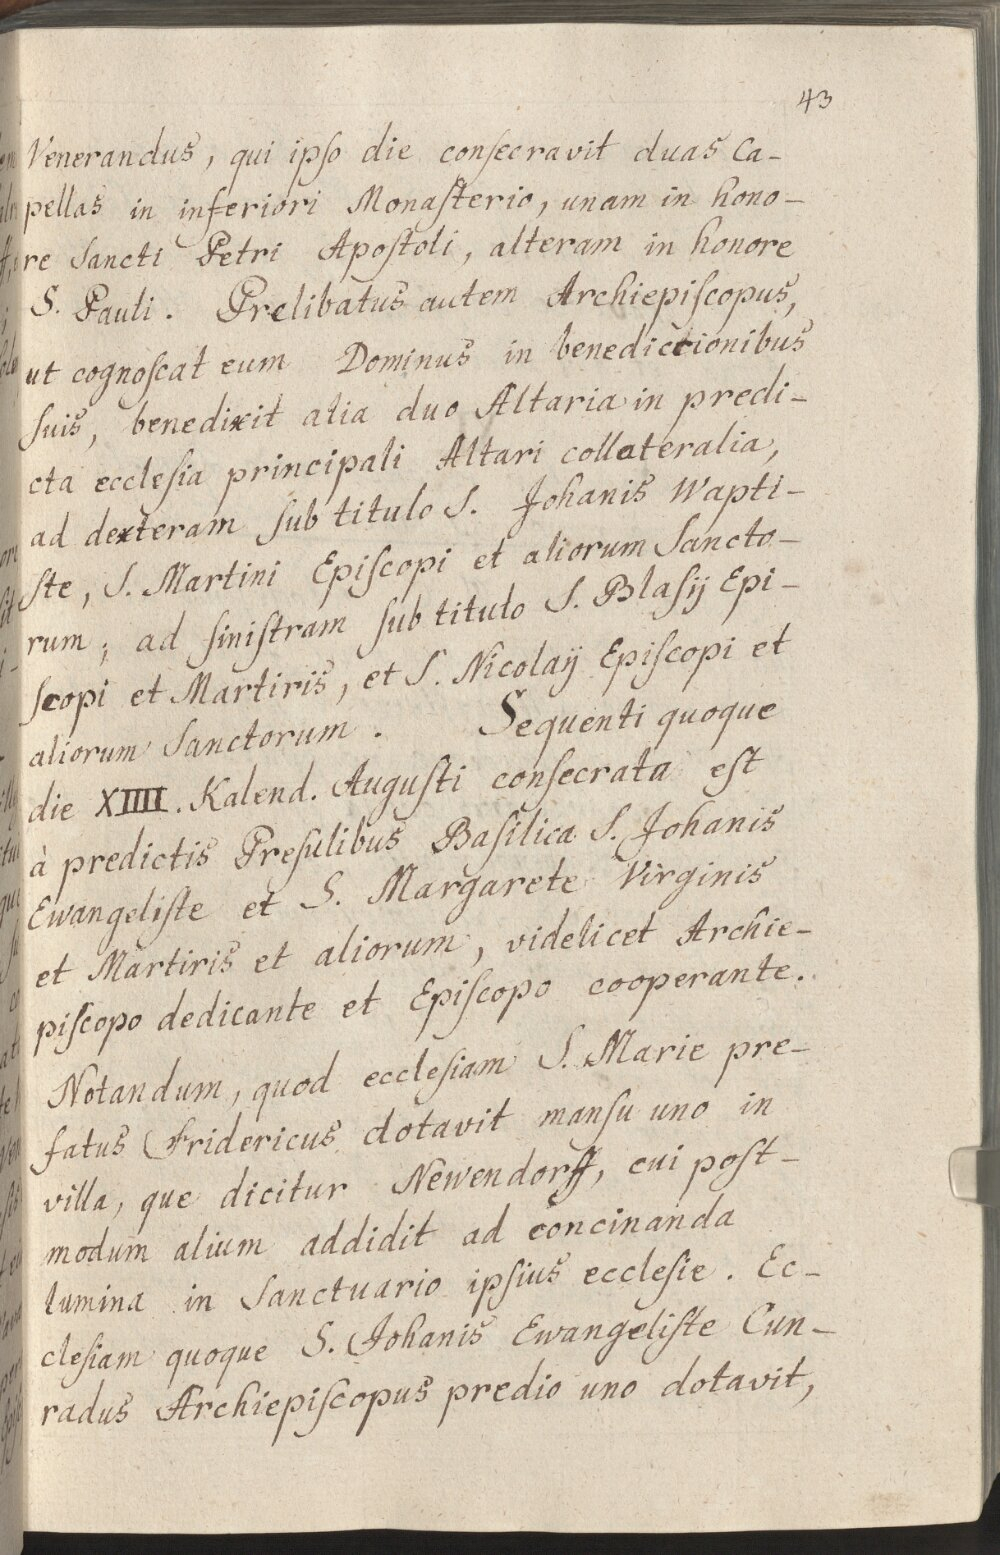 43
Venerandus, qui ipso die consecravit duas Ca-
pellas in inferiori Monasterio, unam in hono-
re Sancti Petri Apostoli, alteram in honore
S. Pauli. Prelibatus autem Archiepiscopus,
ut cognoscat eum Dominus in benedictionibus
suis, benedixit alia duo Altaria in predi-
cta ecclesia principali Altari collateralia,
ad dexteram sub titulo S. Johanis Wapti-
ste, S. Martini Episcopi et aliorum Sancto-
rum; ad sinistram sub titulo S. Blasij Epi-
scopi et Martiris, et S. Nicolaij Episcopi et
aliorum Sanctorum. Sequenti quoque
die XIIII. Kalend. Augusti consecrata est
à predictis Presulibus Basilica S. Johanis
Ewangeliste et S. Margarete Virginis
et Martiris et aliorum, videlicet Archie-
piscopo dedicante et Episcopo cooperante.
Notandum, quod ecclesiam S. Marie pre-
fatus Fridericus dotavit mansu uno in
villa, que dicitur Newendorff, cui post-
modum alium addidit ad concinanda
lumina in Sanctuario ipsius ecclesie. Ec-
clesiam quoque S. Johanis Ewangeliste Cun-
radus Archiepiscopus predio uno dotavit,